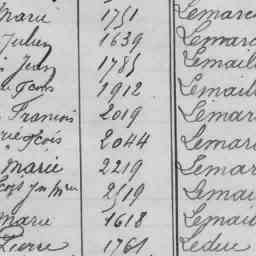 Marie 1751 Lemarc
Julien 1639 Lemarc
Jean 1785 Lemaill
1912 Lemaill
François 2019 Lemar
2044 Lemar
Marie 2219 Lemar
2519 Lemai
Marie 1618 Lemail
Pierre 1761 Leduc